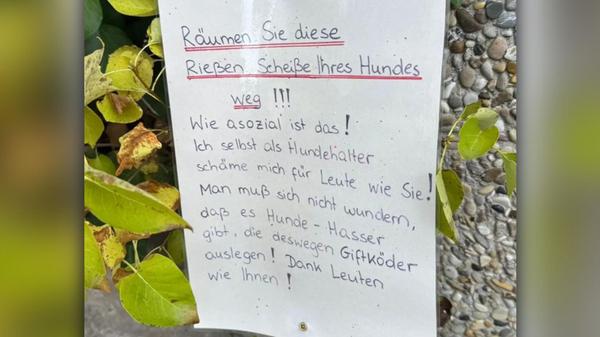 Räumen Sie diese
Rießen Scheiße Ihres Hundes
weg !!!
Wie asozial ist das!
Ich selbst als Hundehalter
schäme mich für Leute wie Sie!
Man muß sich nicht wundern,
daß es Hunde-Hasser
gibt, die deswegen Giftköder
auslegen! Dank Leuten
wie Ihnen!